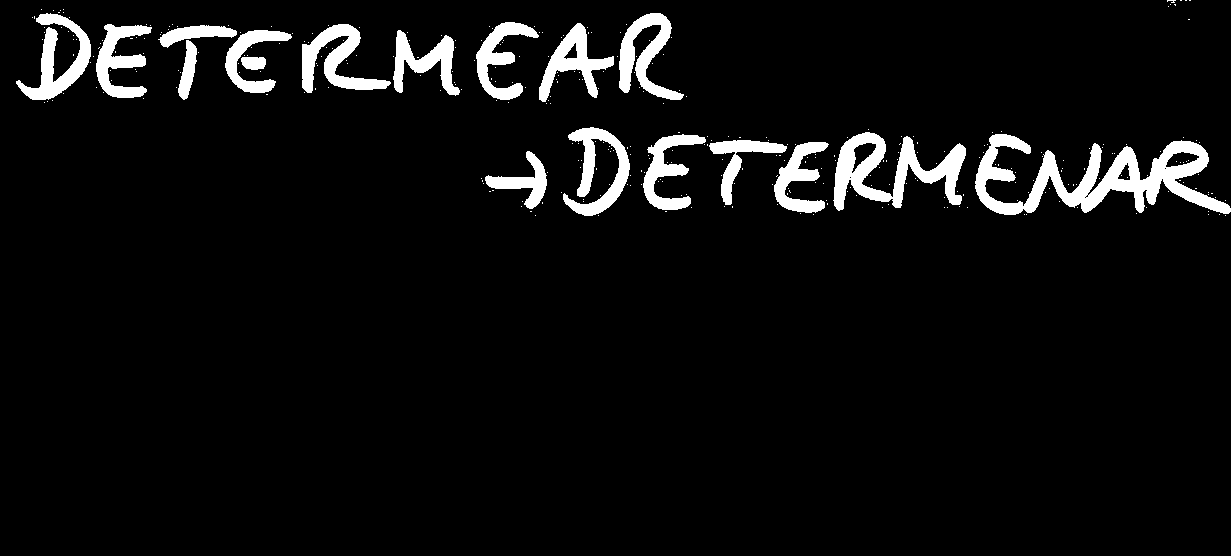 DETERMEAR
→DETERMENAR